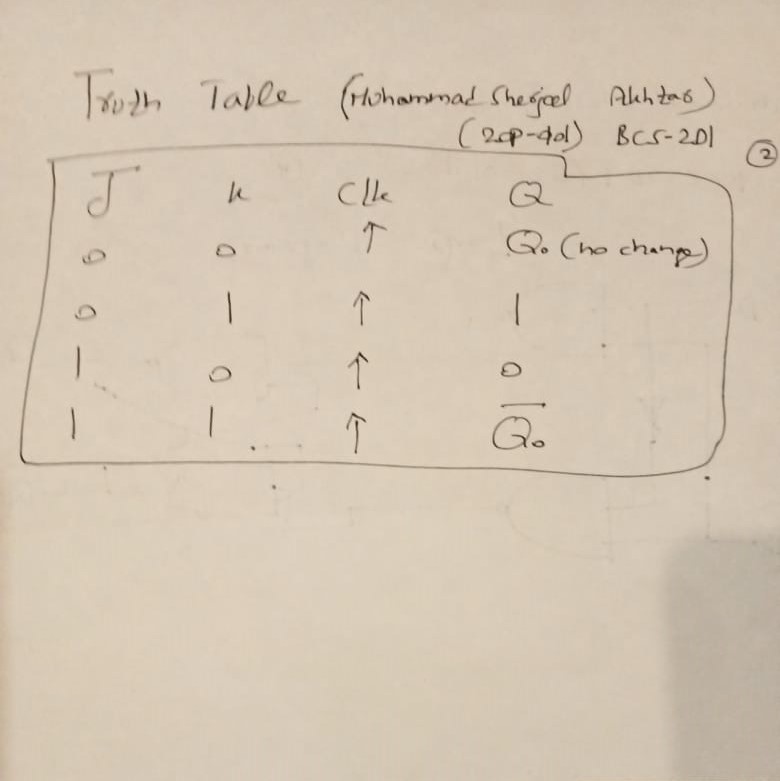 Truth Table (Muhammad Sherjeel Akhtar)
(20P-0101) BCS-2D1
②
J K Clk Q
0 0 ↑ Q₀ (no change)
0 1 ↑ 1
1 0 ↑ 0
1 1 ↑ Q̅₀